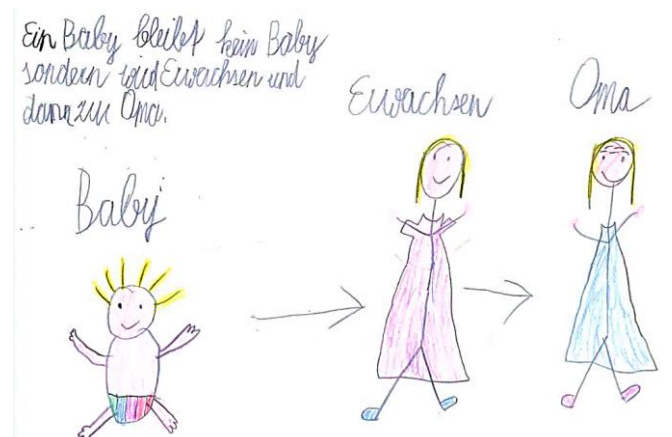 Ein Baby bleibt kein Baby
sondern wird Erwachsen und
dann zur Oma.
Erwachsen
Oma
Baby